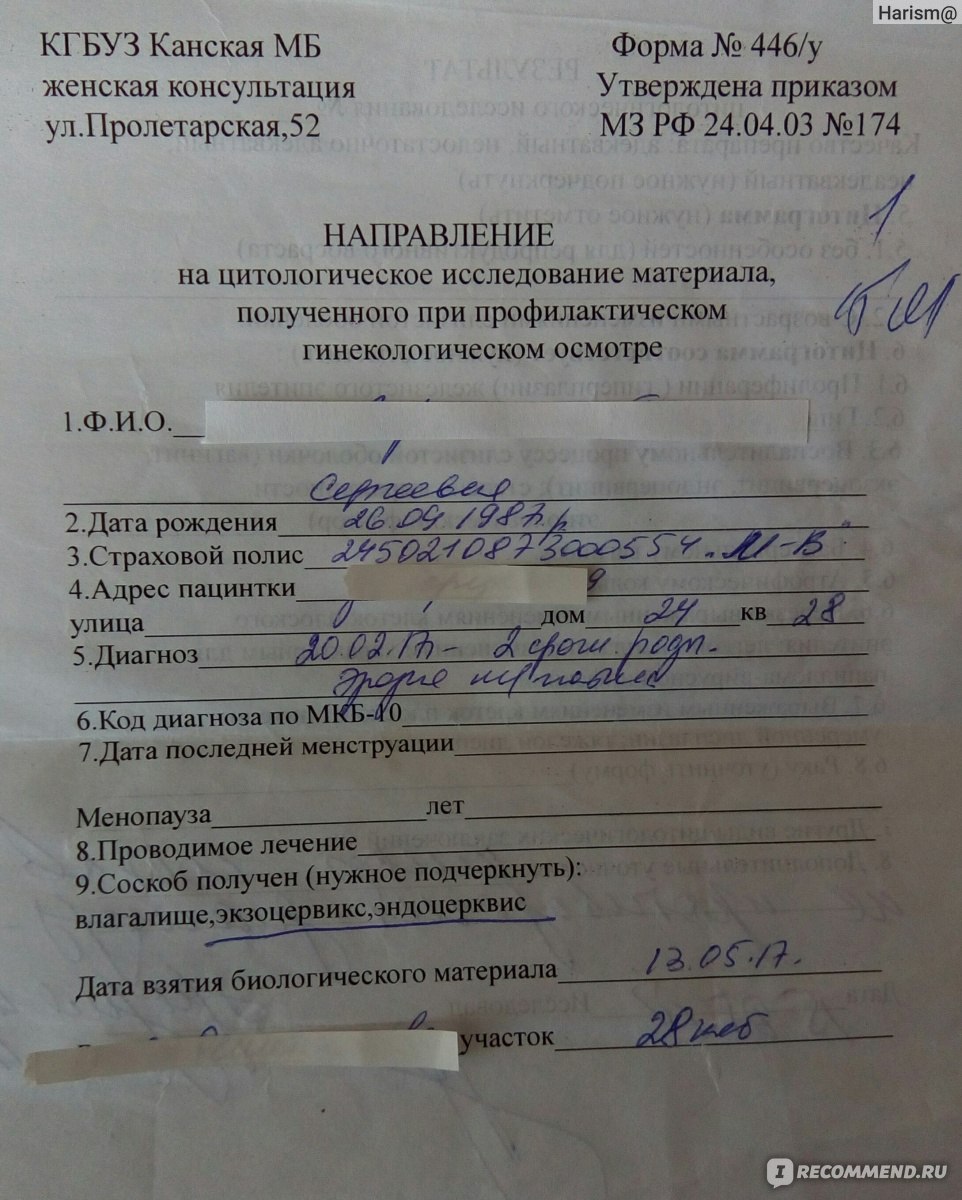 Harism@
КГБУЗ Канская МБ
женская консультация
ул.Пролетарская,52
Форма № 446/у
Утверждена приказом
МЗ РФ 24.04.03 №174
1
НАПРАВЛЕНИЕ
на цитологическое исследование материала,
полученного при профилактическом
гинекологическом осмотре
1.Ф.И.О.
Сергеевна
2.Дата рождения 26.09.1987г.р
3.Страховой полис 2450210873000554. М-В.
4.Адрес пацинтки 9
улица дом 24 кв 28
5.Диагноз 20.02.17г - 2 срочн. роды.
Эрозия ш/матки
6.Код диагноза по МКБ-10
7.Дата последней менструации
Менопауза лет
8.Проводимое лечение
9.Соскоб получен (нужное подчеркнуть):
влагалище,экзоцервикс,эндоцерквис
Дата взятия биологического материала 13.05.17.
участок 28 каб
I RECOMMEND.RU